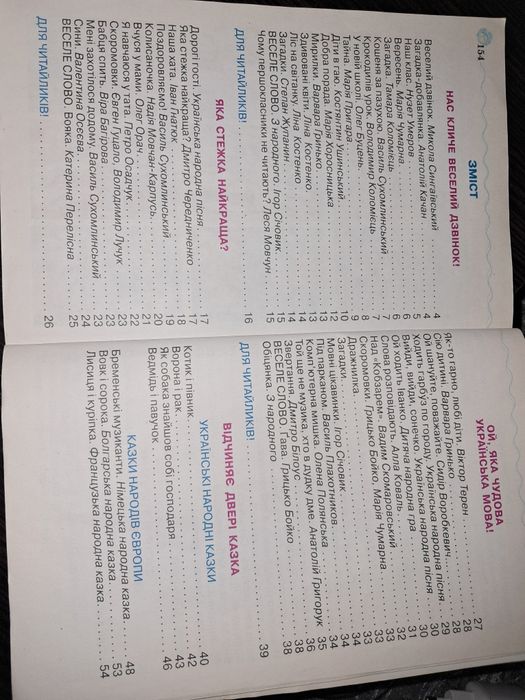 154
ЗМІСТ
НАС КЛИЧЕ ВЕСЕЛИЙ ДЗВІНОК!
Веселий дзвінок. Микола Сингаївський . . . 4
Загадка-добавлянка. Анатолій Качан . . . 4
Наш клас. Нузет Умеров . . . 5
Вересень. Марія Чумарна . . . 6
Загадка. Тамара Коломієць . . . 6
Кошеня за пазухою. Василь Сухомлинський . . . 7
Крокодилів урок. Володимир Коломієць . . . 7
У новій школі. Олег Буцень . . . 8
Тайна. Марія Пригара . . . 9
Діти в гаю. Костянтин Ушинський . . . 10
Добра порада. Марія Хоросницька . . . 12
Мирилки. Варвара Гринько . . . 13
Здивовані квіти. Ліна Костенко . . . 13
Ліс на світанку. Ліна Костенко . . . 14
Загадки. Степан Жупанин . . . 14
ВЕСЕЛЕ СЛОВО. З народного. Ігор Січовик . . . 15
Чому першокласники не читають? Леся Мовчун . . . 15
ДЛЯ ЧИТАЙЛИКІВ! . . . 16
ЯКА СТЕЖКА НАЙКРАЩА?
Дорогі гості. Українська народна пісня . . . 17
Яка стежка найкраща? Дмитро Чередниченко . . . 17
Наша хата. Іван Гнатюк . . . 18
Поздоровляємо! Василь Сухомлинський . . . 19
Колисаночка. Надія Мовчан-Карпусь . . . 20
Вчуся у мами. Олег Орач . . . 21
Я навчаюся у тата. Петро Осадчук . . . 22
Скоромовки. Євген Гуцало, Володимир Лучук . . . 23
Бабця спить. Віра Багірова . . . 23
Мені захотілося додому. Василь Сухомлинський . . . 23
Сини. Валентина Осеєва . . . 24
ВЕСЕЛЕ СЛОВО. Вояка. Катерина Перелісна . . . 25
ДЛЯ ЧИТАЙЛИКІВ! . . . 26
ОЙ, ЯКА ЧУДОВА
УКРАЇНСЬКА МОВА!
Як-то гарно, любі діти. Віктор Терен . . . 27
Сію дитині. Варвара Гринько . . . 28
Ой шануйте, поважайте. Сидір Воробкевич . . . 28
Ходить гарбуз по городу. Українська народна пісня . . . 29
Вийди, вийди, сонечко. Українська народна пісня . . . 30
Ой ходить Іванко. Дитяча народна гра . . . 30
Слова розповідають. Алла Коваль . . . 31
Над «Кобзарем». Вадим Скомаровський . . . 32
Скоромовки. Грицько Бойко, Марія Чумарна . . . 33
Дражнилка . . . 33
Загадки . . . 34
Мовні цікавинки. Ігор Січовик . . . 34
Під парканом. Василь Плахотников . . . 34
Комп'ютерна мишка. Олена Полянська . . . 35
Той ще не музика, хто в дудку дме. Анатолій Григорук . . . 36
Звертання. Дмитро Білоус . . . 38
ВЕСЕЛЕ СЛОВО. Гава. Грицько Бойко . . . 38
Обіцянка. З народного . . . 38
ДЛЯ ЧИТАЙЛИКІВ! . . . 39
ВІДЧИНЯЄ ДВЕРІ КАЗКА
УКРАЇНСЬКІ НАРОДНІ КАЗКИ
Котик і півник . . . 40
Ворона і рак . . . 42
Як собака знайшов собі господаря . . . 43
Ведмідь і павучок . . . 46
КАЗКИ НАРОДІВ ЄВРОПИ
Бременські музиканти. Німецька народна казка . . . 48
Вовк і сорока. Болгарська народна казка . . . 53
Лисиця і куріпка. Французька народна казка . . . 54